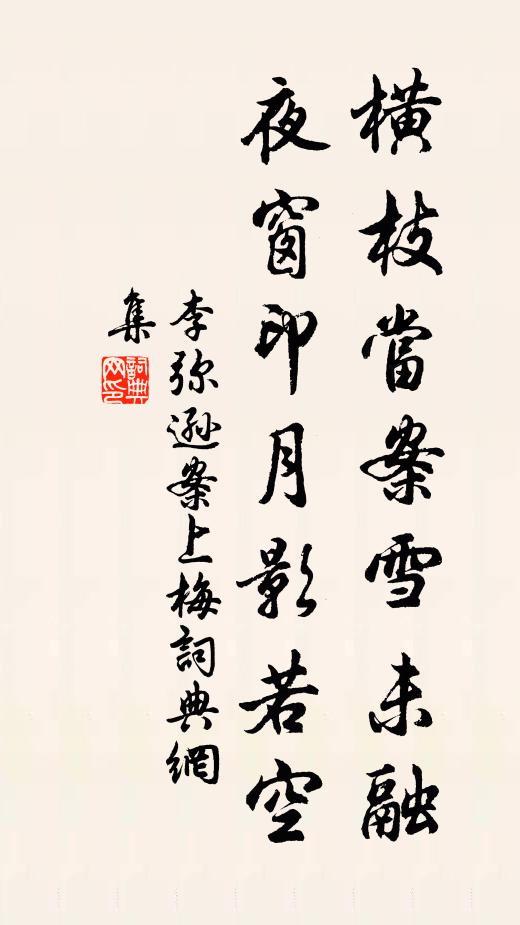 橫枝當案雪未融
夜窗印月影若空
李弥遜案上梅詞典網
集
詞典網印